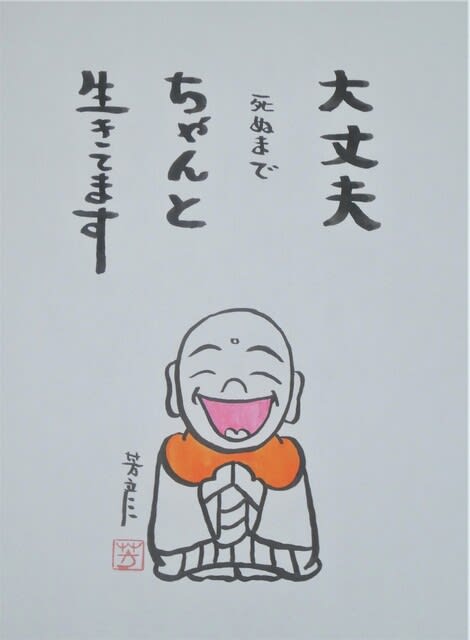 大丈夫
死ぬまで
ちゃんと
生きてます
芳